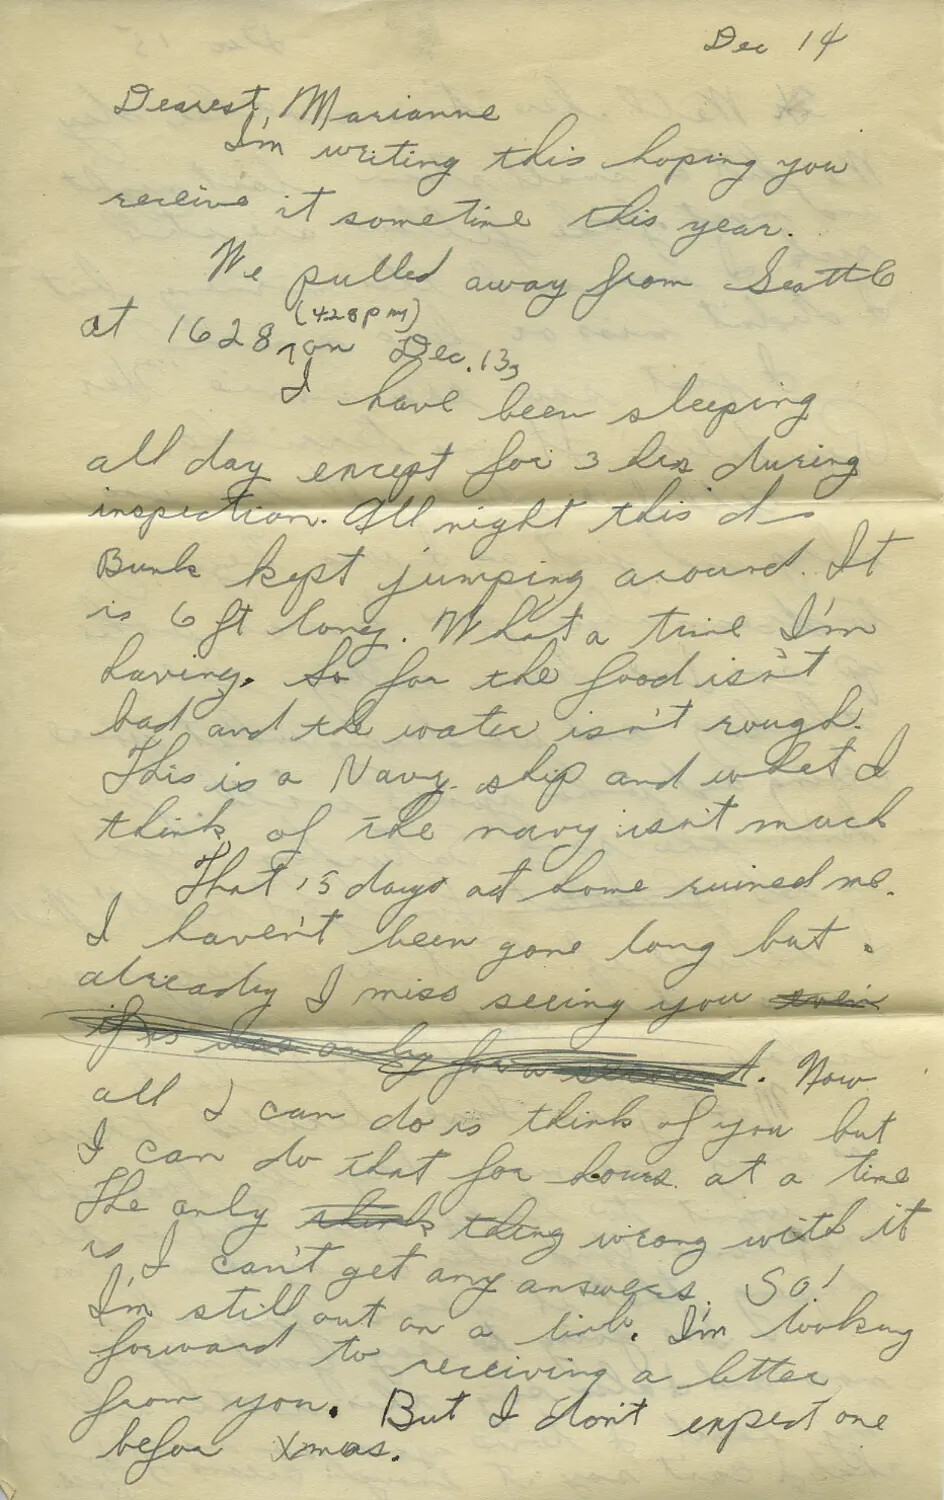 Dec 14
Dearest, Marianne
I'm writing this hoping you
receive it sometime this year.
We pulled away from Seattle
(428 pm)
at 1628, on Dec. 13,
I have been sleeping
all day except for 3 hrs during
inspection. All night this d—
Bunk kept jumping around. It
is 6 ft long. What a time I'm
having. So far the food isn't
bad and the water isn't rough.
This is a Navy ship and what I
think of the navy isn't much
That 15 days at home ruined me.
I haven't been gone long but
already I miss seeing you even
if it was only for a second. Now
all I can do is think of you but
I can do that for hours at a time
The only think thing wrong with it
is I can't get any answers. SO!
I'm still out on a limb. I'm looking
forward to receiving a letter
from you. But I don't expect one
befor Xmas.